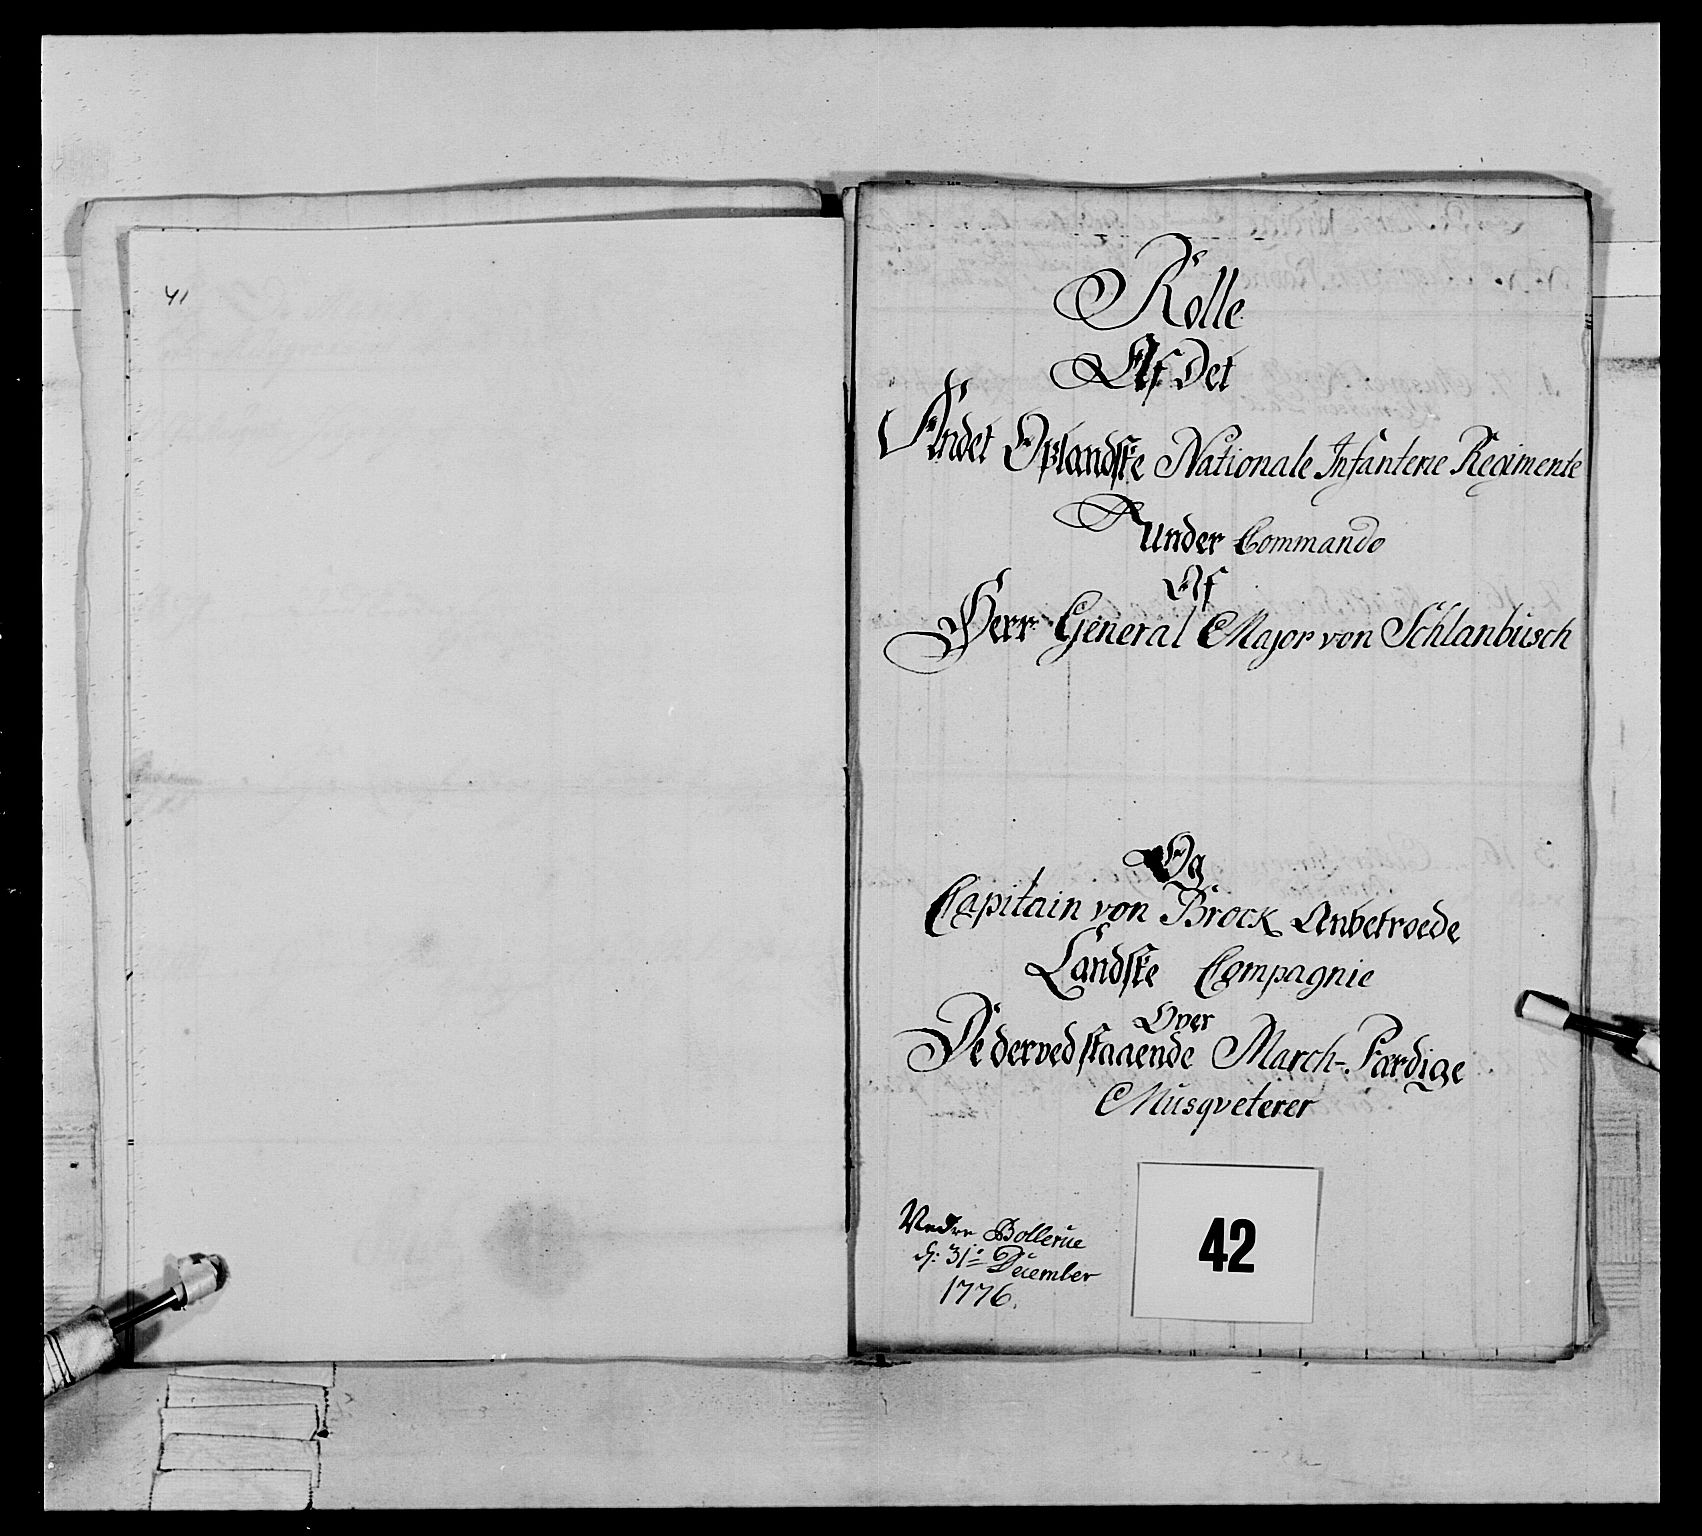 41
Rolle
Af Det
Andet Oplandske Nationale Infanterie Regimente
under Commando
Af
Herr General Major von Schlanbüsch
Og
Capitain von Brock Anbetroede
Landske Compagnie
Over
De derved staaende March-Færdige
Müsqveterer
Vedre Bollerüe
d: 31te December
1776.
42